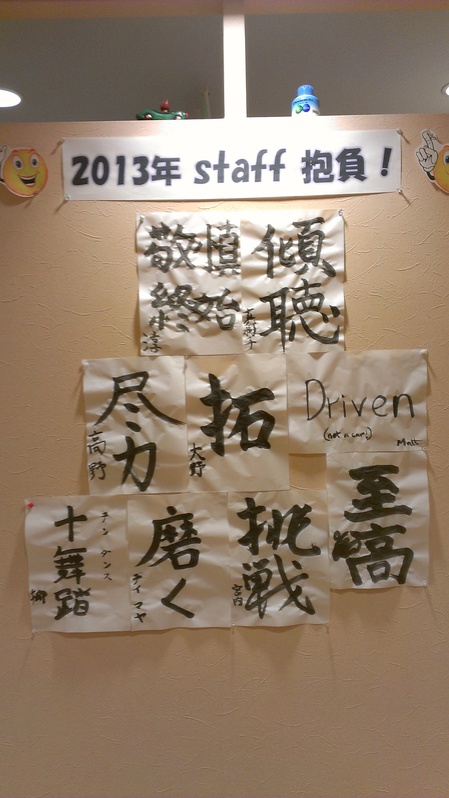 2013年 staff 抱負！
慎始
敬終
淳
傾聴
尽力
高野
拓
大野
Driven
(not a car!)
Matt
至高
十舞踏
テンダンス
磨く
テイマヤ
挑戦
宮内